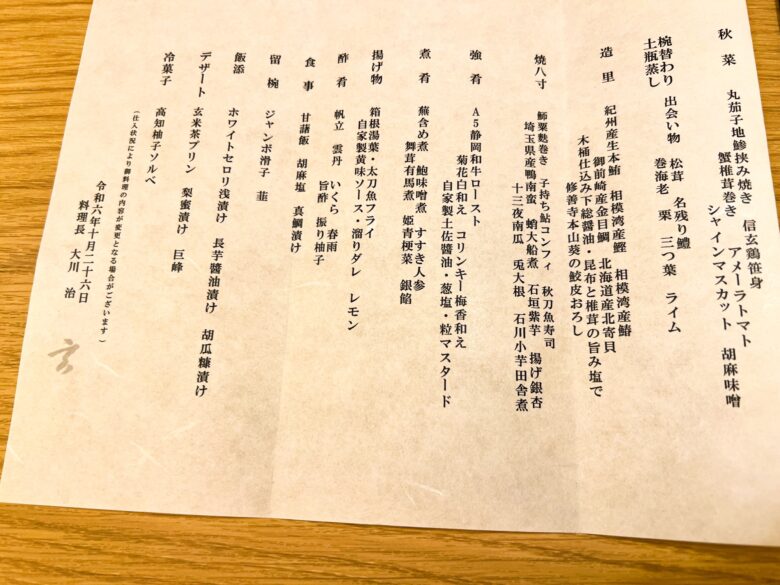 秋菜 丸茄子地鯵挟み焼き 信玄鶏笹身
蟹椎茸巻き アメーラトマト
シャインマスカット 胡麻味噌
椀替わり 出会い物 松茸 名残り鱧
土瓶蒸し 巻海老 栗 三つ葉 ライム
造里 紀州産生本鮪 相模湾産鰹 相模湾産鰆
御前崎産金目鯛 北海道産北寄貝
木桶仕込み下総醤油・昆布と椎茸の旨み塩で
修善寺本山葵の鮫皮おろし
焼八寸 鰤粟麩巻き 子持ち鮎コンフィ 秋刀魚寿司
埼玉県産鴨南蛮 蛸大船煮 石垣紫芋 揚げ銀杏
十三夜南瓜 兎大根 石川小芋田舎煮
強肴 A5静岡和牛ロースト
菊花白和え コリンキー梅香和え
自家製土佐醬油・葱塩・粒マスタード
煮肴 蕪含め煮 鮑味噌煮 すすき人参
舞茸有馬煮 姫青梗菜 銀餡
揚げ物 箱根湯葉・太刀魚フライ
自家製黄味ソース・溜りダレ レモン
酢肴 帆立 雲丹 いくら 春雨
旨酢 振り柚子
食事 甘藷飯 胡麻塩 真鯛漬け
留椀 ジャンボ滑子 韮
飯添 ホワイトセロリ浅漬け 長芋醬油漬け 胡瓜糠漬け
デザート 玄米茶プリン 梨蜜漬け 巨峰
冷菓子 高知柚子ソルベ
(仕入状況により御料理の内容が変更となる場合がございます)
令和六年十月二十六日
料理長 大川 治